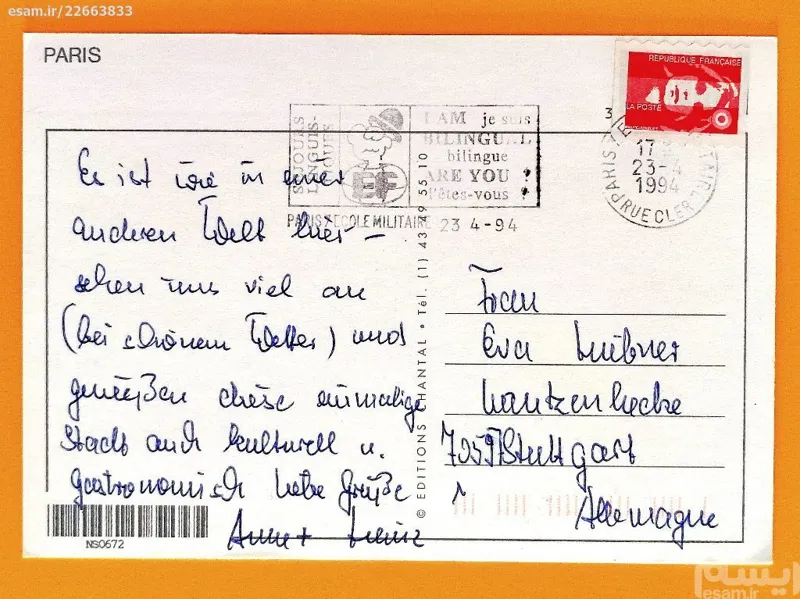 esam.ir/22663833
PARIS
RÉPUBLIQUE FRANÇAISE
LA POSTE
SEJOURS
LANGUIS-
TIQUES
EF
I AM je suis
BILINGUAL
bilingue
ARE YOU ?
l'êtes-vous ?
PARIS 7 ECOLE MILITAIRE 23 4-94
17
23-4
1994
PARIS 7
RUE CLER
Es ist wie in einer
anderen Welt hier –
sehen uns viel an
(bei schönem Wetter) und
genießen diese einmalige
Stadt auch kulturell u.
gastronomisch liebe Grüße
© EDITIONS CHANTAL • Tél. (1) 43 49 55 10
Frau
Eva
Stuttgart
Allemagne
NS0672
ایسام
esam.ir